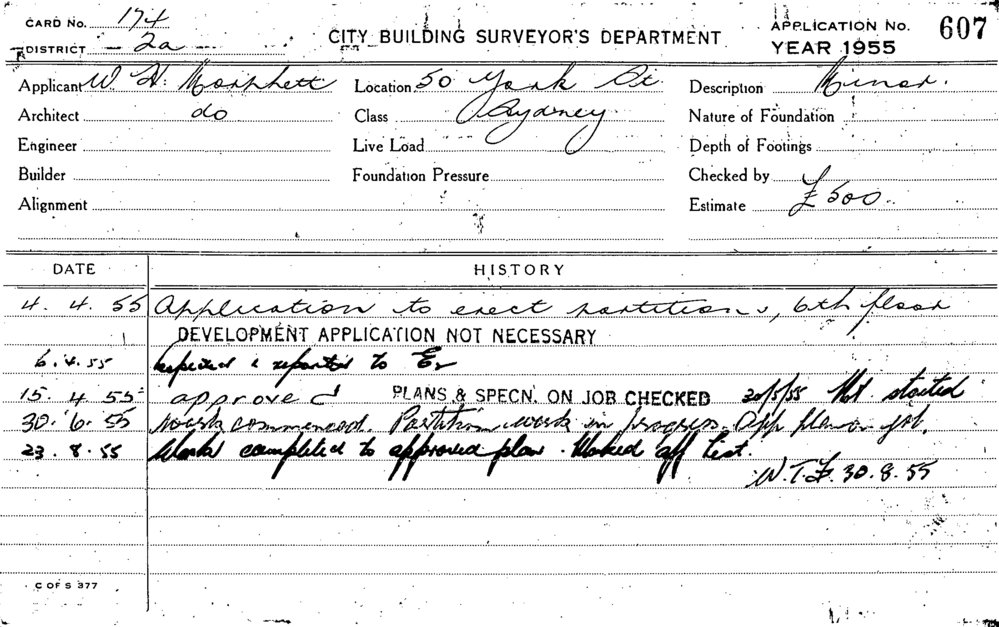 CARD No. 174
DISTRICT 2a
CITY BUILDING SURVEYOR'S DEPARTMENT
APPLICATION No. 607
YEAR 1955
Applicant W. H. Morphett Location 50 York St Description Minor.
Architect do Class Sydney Nature of Foundation
Engineer Live Load Depth of Footings
Builder Foundation Pressure Checked by
Alignment Estimate £500
DATE HISTORY
4. 4. 55 Application to erect partitions, 6th floor
DEVELOPMENT APPLICATION NOT NECESSARY
6. 4. 55 Inspected & reported to
15. 4. 55 approved PLANS & SPECN. ON JOB CHECKED 20/5/55 Not started
30. 6. 55 Work commenced. Partition work in progress. App plan on job.
23. 8. 55 Work completed to approved plan. Marked off list.
W.T.F. 30. 8. 55
C OF S 377